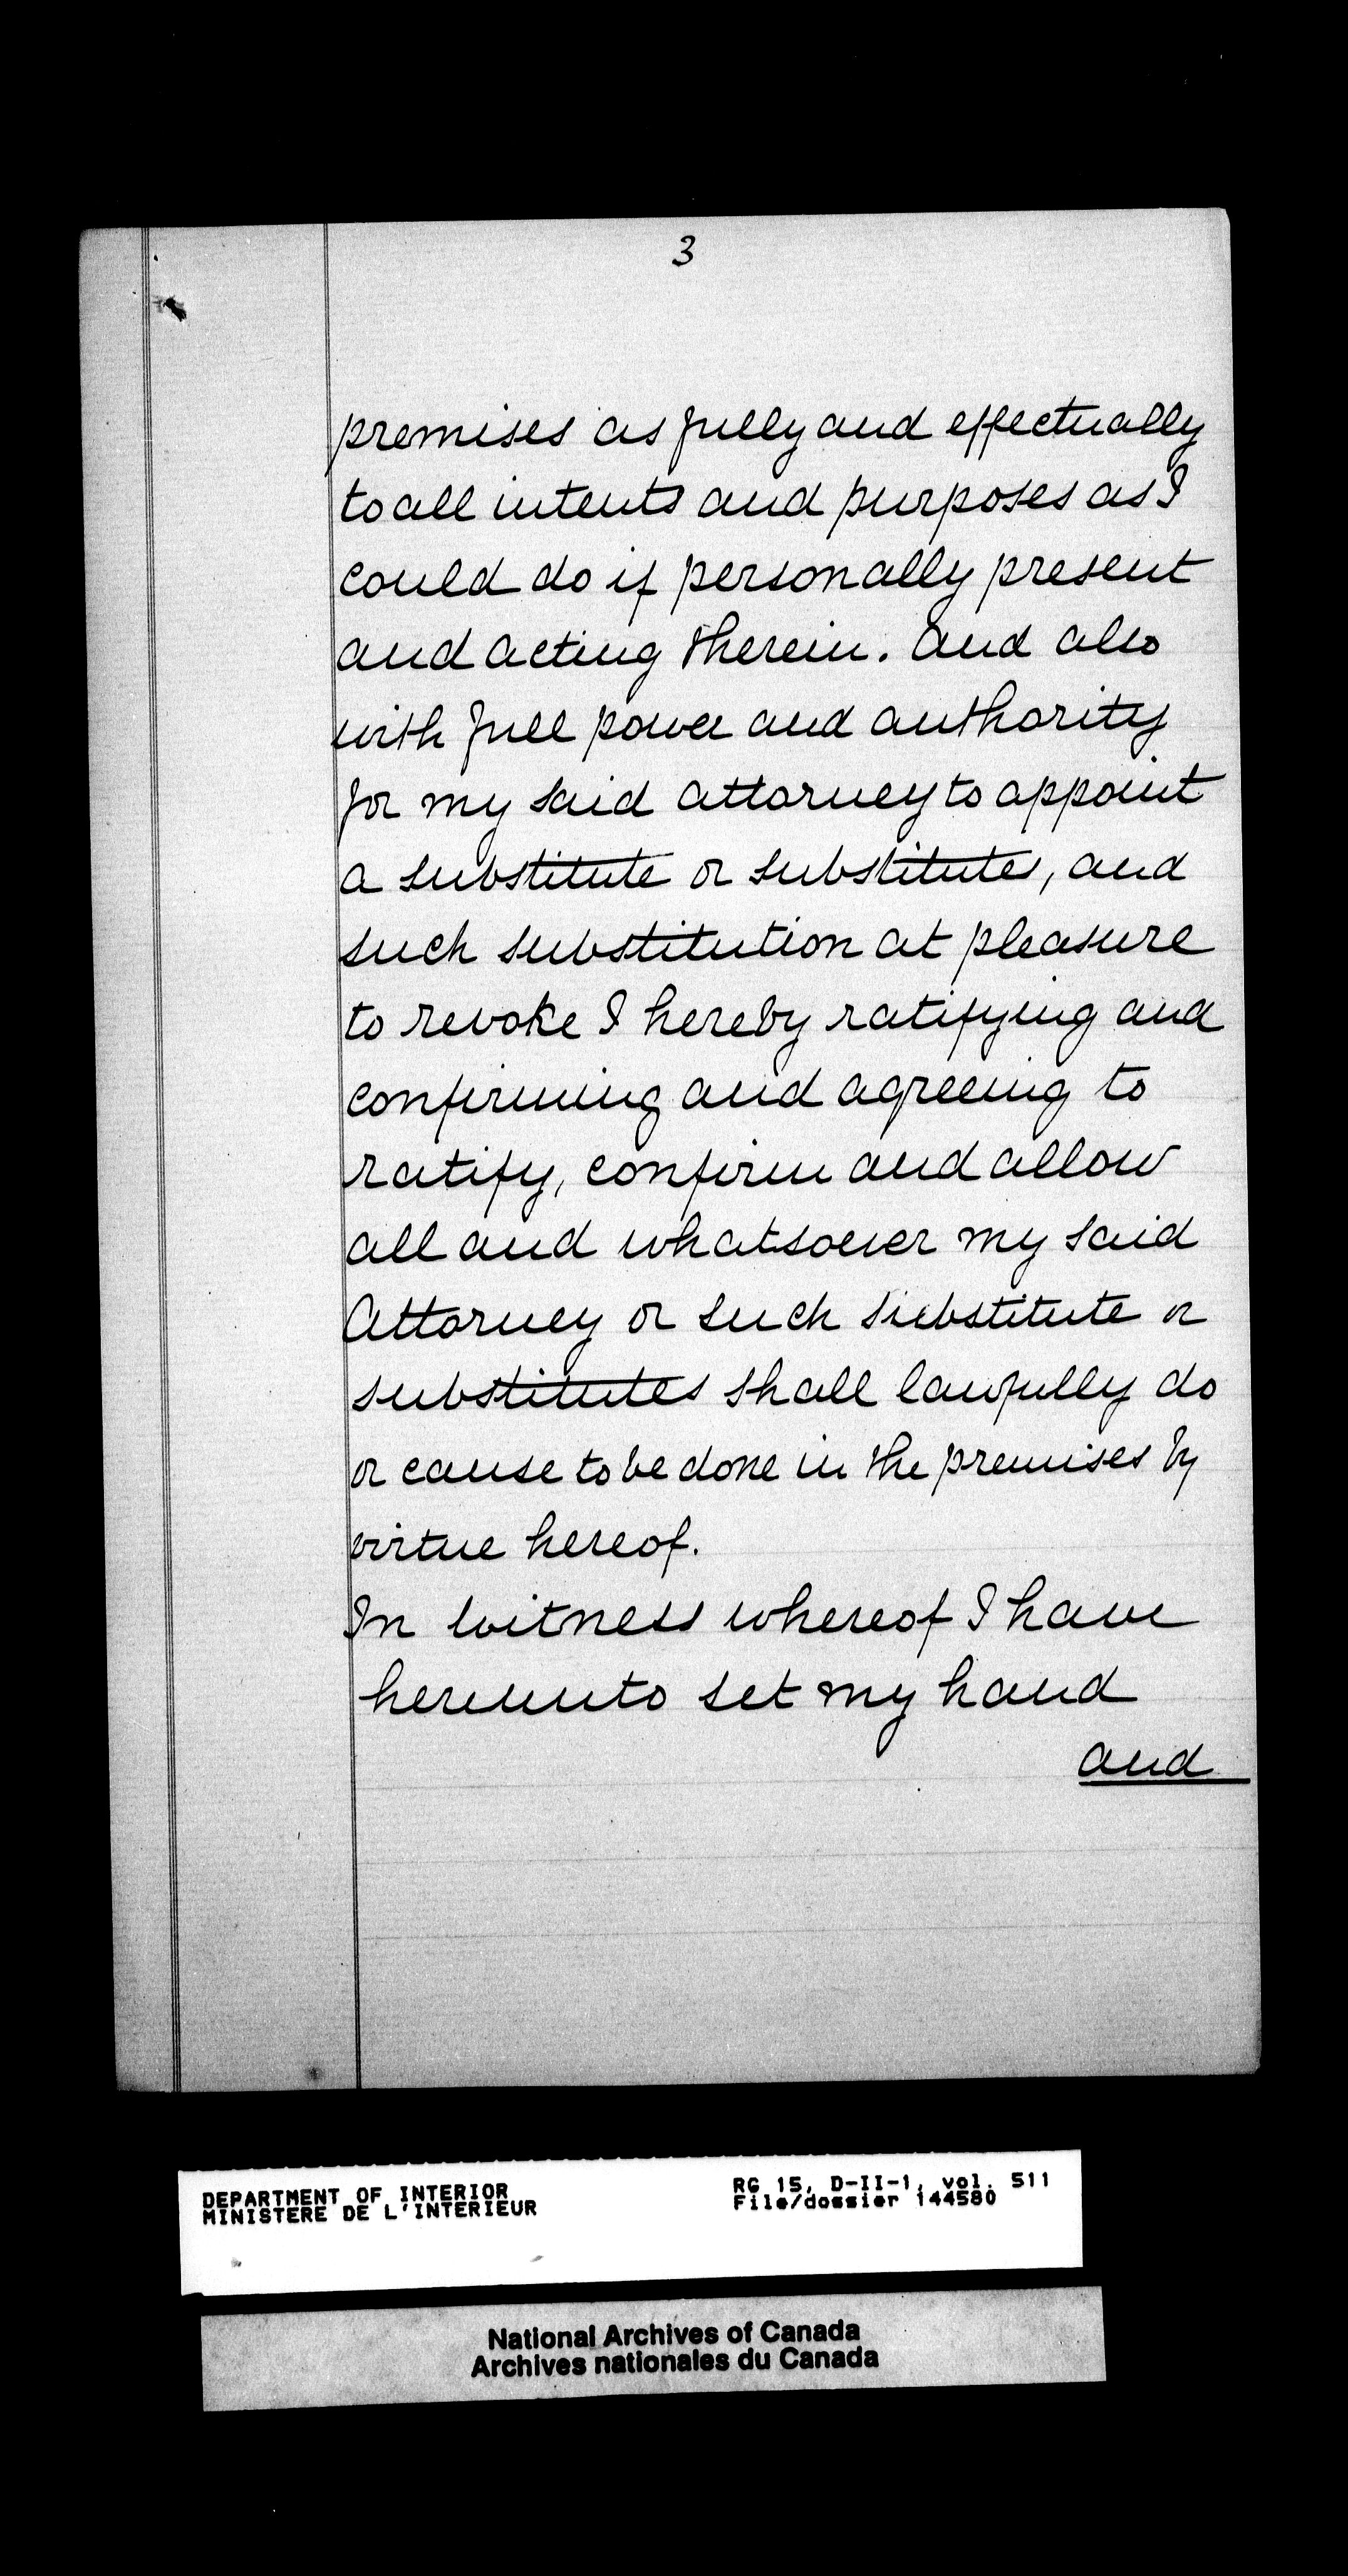 3
premises as fully and effectually
to all intents and purposes as I
could do if personally present
and acting therein. And also
with full power and authority
for my said attorney to appoint
a substitute or substitutes, and
such substitution at pleasure
to revoke I hereby ratifying and
confirming and agreeing to
ratify, confirm and allow
all and whatsoever my said
Attorney or such substitute or
substitutes shall lawfully do
or cause to be done in the premises by
virtue hereof.
In witness whereof I have
hereunto set my hand
and
DEPARTMENT OF INTERIOR
MINISTERE DE L'INTERIEUR
RG 15, D-II-1, vol. 511
File/dossier 144580
National Archives of Canada
Archives nationales du Canada